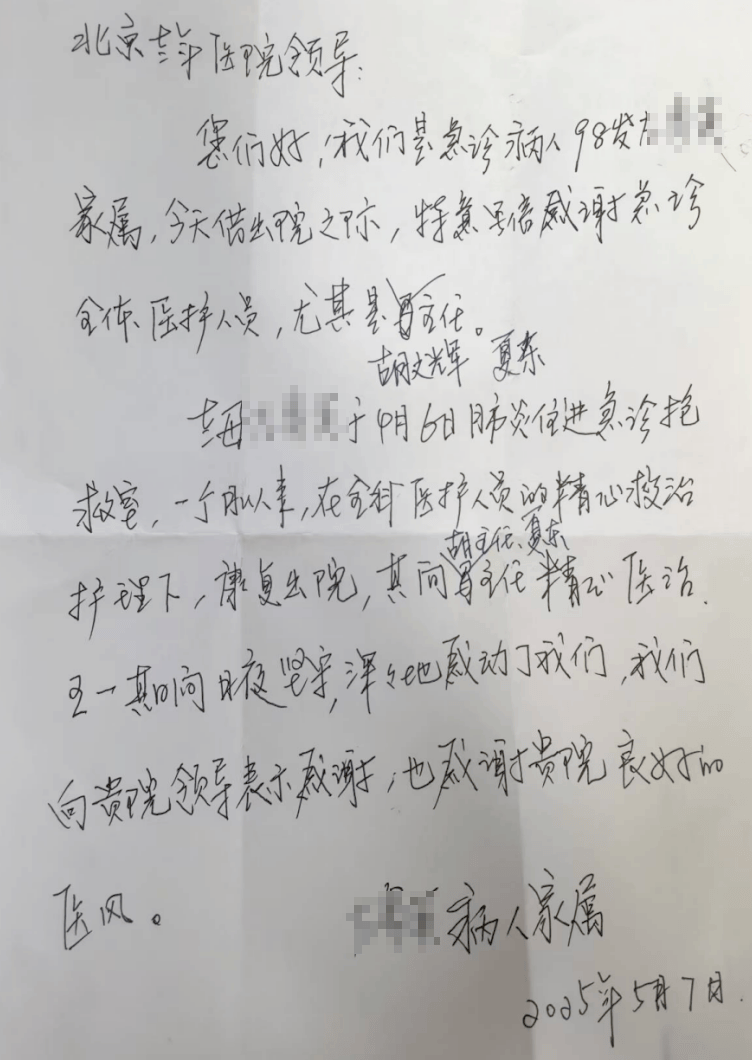 北京老年医院领导:
您们好,我们是急诊病人98岁
家属,今天借出院之际,特意感谢急诊
全体医护人员,尤其是主任。
胡文辉 夏东
老母 于4月6日肺炎住进急诊抢
救室,一个月以来,在全科医护人员的精心救治
胡主任、夏东
护理下,康复出院,其间主任精心医治.
五一期间日夜坚守,深々地感动了我们,我们
向贵院领导表示感谢,也感谢贵院良好的
医风。
病人家属
2025年5月7日.